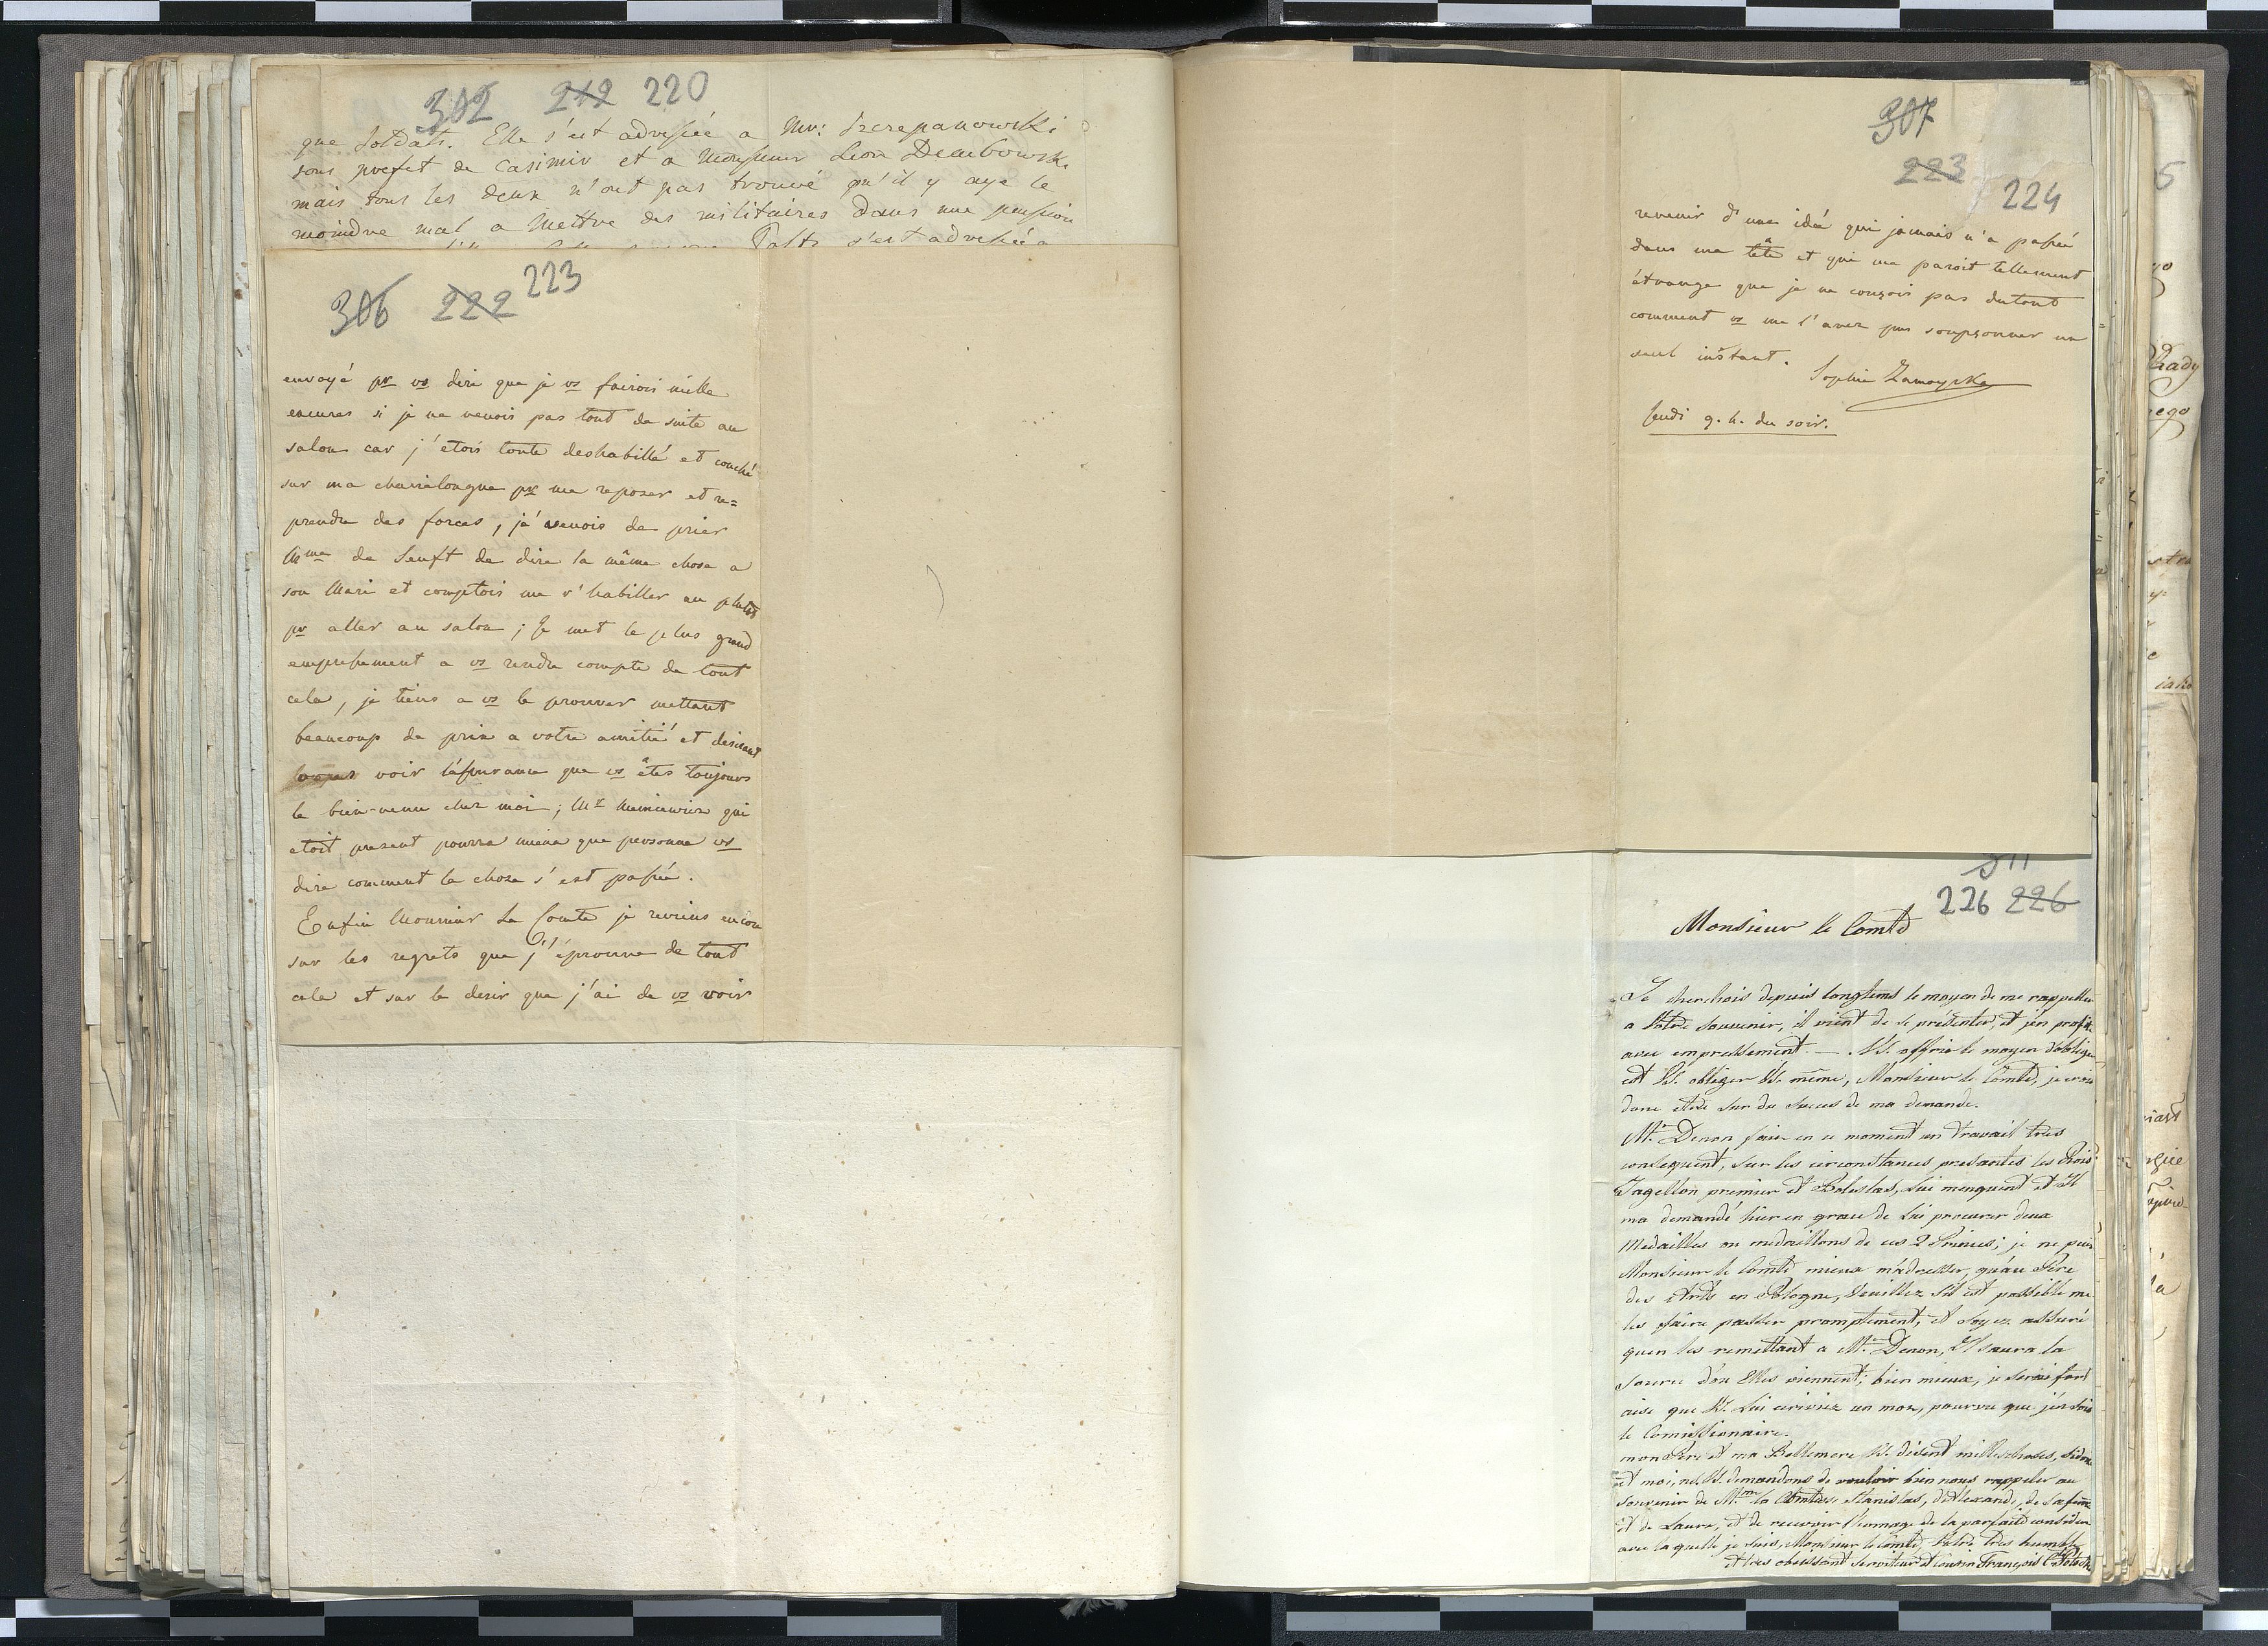 302 212 220
que soldats. Elle s'est adressée a Mr: Szczepanowski
sous prefet de Casimir et a Monsieur Leon Dembowski
mais tous les deux n'ont pas trouvé qu'il y aye le
moindre mal a mettre des militaires dans une pension
s'est adressée a
306 222 223
envoyé pr vs dire que je vs fairois mille
excuses si je ne venois pas tout de suite au
salon car j'étois toute deshabillé et couché
sur ma chaiselongue pr me reposer et re=
prendre des forces, je venois de prier
Mme de Senft de dire la même chose a
son Mari et comptois me r'habiller au plutot
pr aller au salon; Je met le plus grand
empressement a vs rendre compte de tout
cela, je tiens a vs le prouver mettant
beaucoup de prix a votre amitié et desirant
voir l'assurance que vs êtes toujours
le bien-venu chez moi; Mr Niemcewicz qui
etoit present pourra mieux que personne vs
dire comment la chose s'est passée.
Enfin Monsieur Le Comte je reviens encor
sur les regrets que j'éprouve de tout
cela et sur le desir que j'ai de vs voir
307
223
224
revenir d'une idée qui jamais n'a passée
dans ma tête et qui me paroit tellement
étrange que je ne conçois pas dutout
comment vs me l'avez pus soupçonner un
seul instant.
Sophie Zamoyska
Jeudi 9. h. du soir.
311
226 226
Monsieur le Comte
Je cherchois depuis longtems le moyen de me rappeller
a Votre souvenir, il vient de se présenter, et j'en profite
avec empressement. — Vs. offrir le moyen d'obliger
est Vs. obliger Vs. même, Monsieur le Comte, je crois
donc etre sur du succes de ma demande.
Mr. Denon fait en ce moment un travail tres
consequent, sur les circonstances presantes les Rois
Jagellon premier et Boleslas, Lui manquent et Il
ma demandé hier en grace de Lui procurer deux
Medailles ou medaillons de ces 2 Princes; je ne puis
Monsieur le Comte mieux m'adresser, qu'au Père
des Arts en Pologne, Veuillez s'il est possible me
les faire passer promptement, et soyez assuré
quen les remettant a Mr. Denon, Il saura la
source d'ou Elles viennent; bien mieux, je serois fort
aise que Vs. Lui écriviez un mot, pourvu que j'en sois
le Comissionaire.
mon Pere et ma Bellemere Vs. disent milles choses,
et moi, ns. Vs. demandons de vouloir bien nous rappeler au
souvenir de Mme la Comtesse Stanislas, d'Alexandre, de sa femme
et de Laure, et de recevoir l'homage de la parfaite consideration
avec laquelle je suis, Monsieur le Comte, Votre tres humble
et tres obeissant Serviteur et Cousin François C. Potocki